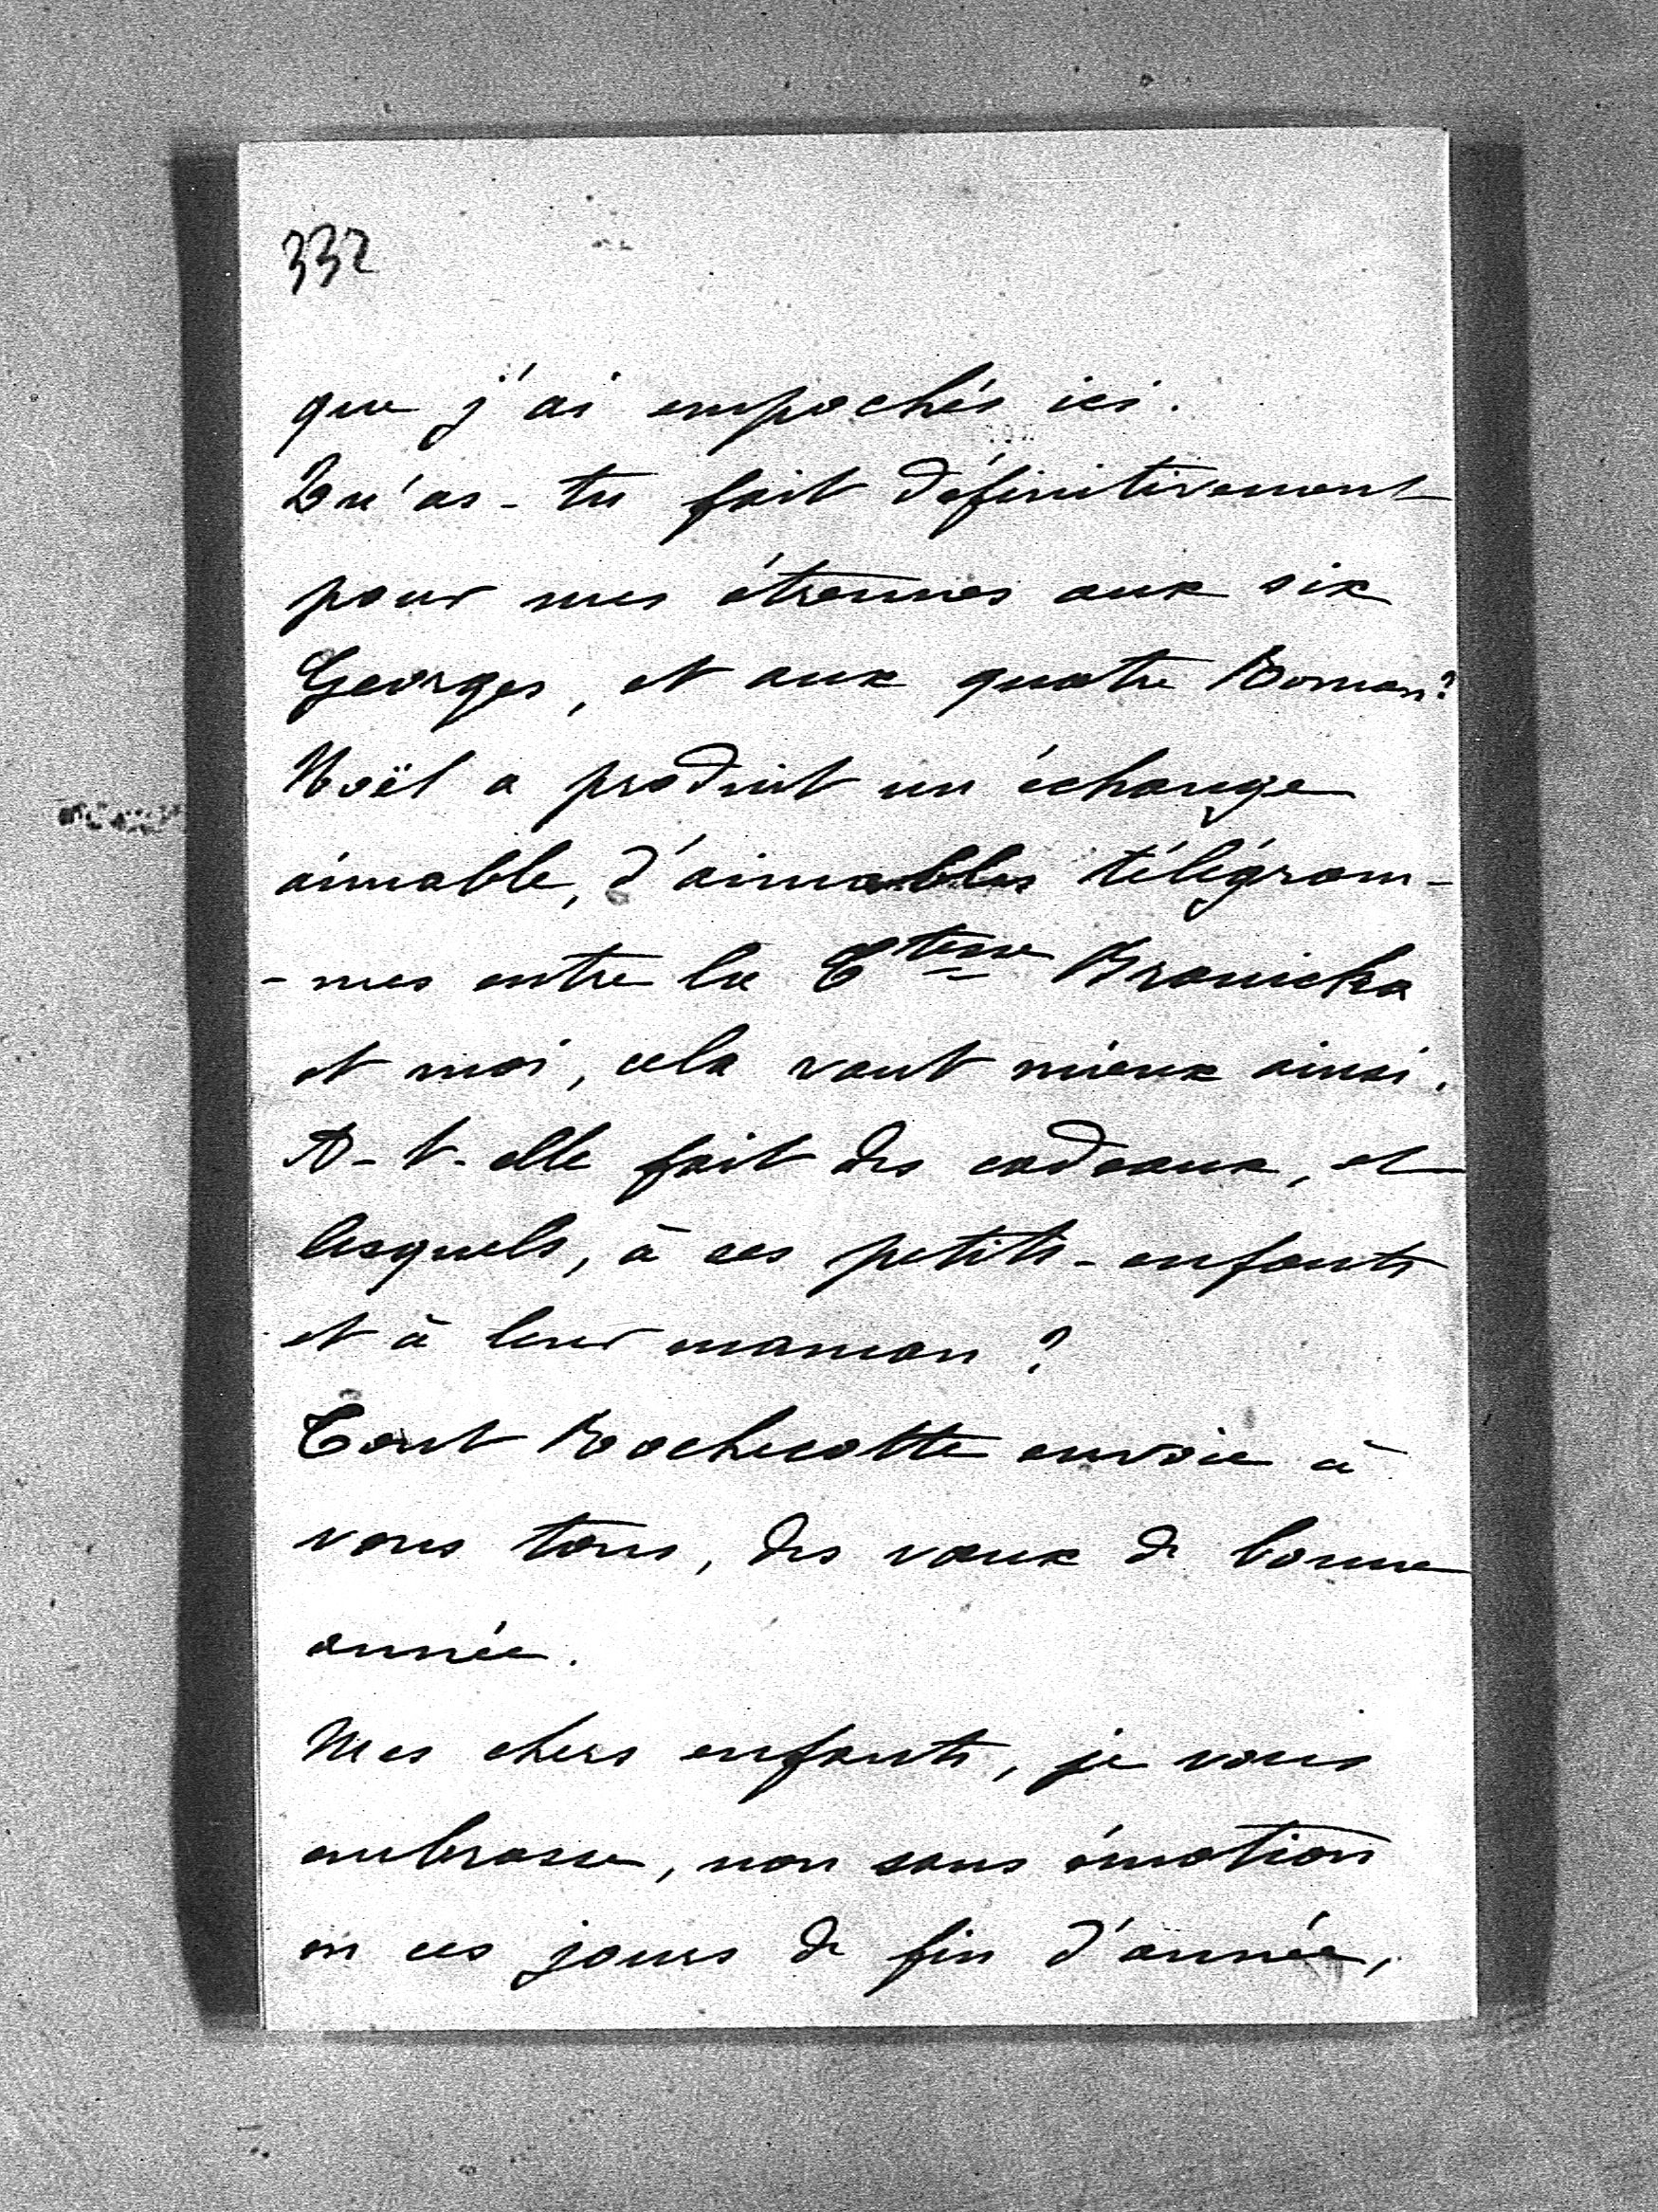 332
que j'ai empochés ici.
Qu'as-tu fait définitivement
pour mes étrennes aux six
Georges, et aux quatre Roman?
Noël a produit un échange
aimable, d'aimables télégram-
-mes entre la Ctesse Branicka
et moi, cela vaut mieux ainsi.
A-t-elle fait des cadeaux, et
lesquels, à ces petits-enfants
et à leur maman?
Tout Rochecotte envoie à
vous tous, des vœux de bonne
année.
Mes chers enfants, je vous
embrasse, non sans émotion
en ces jours de fin d'année,